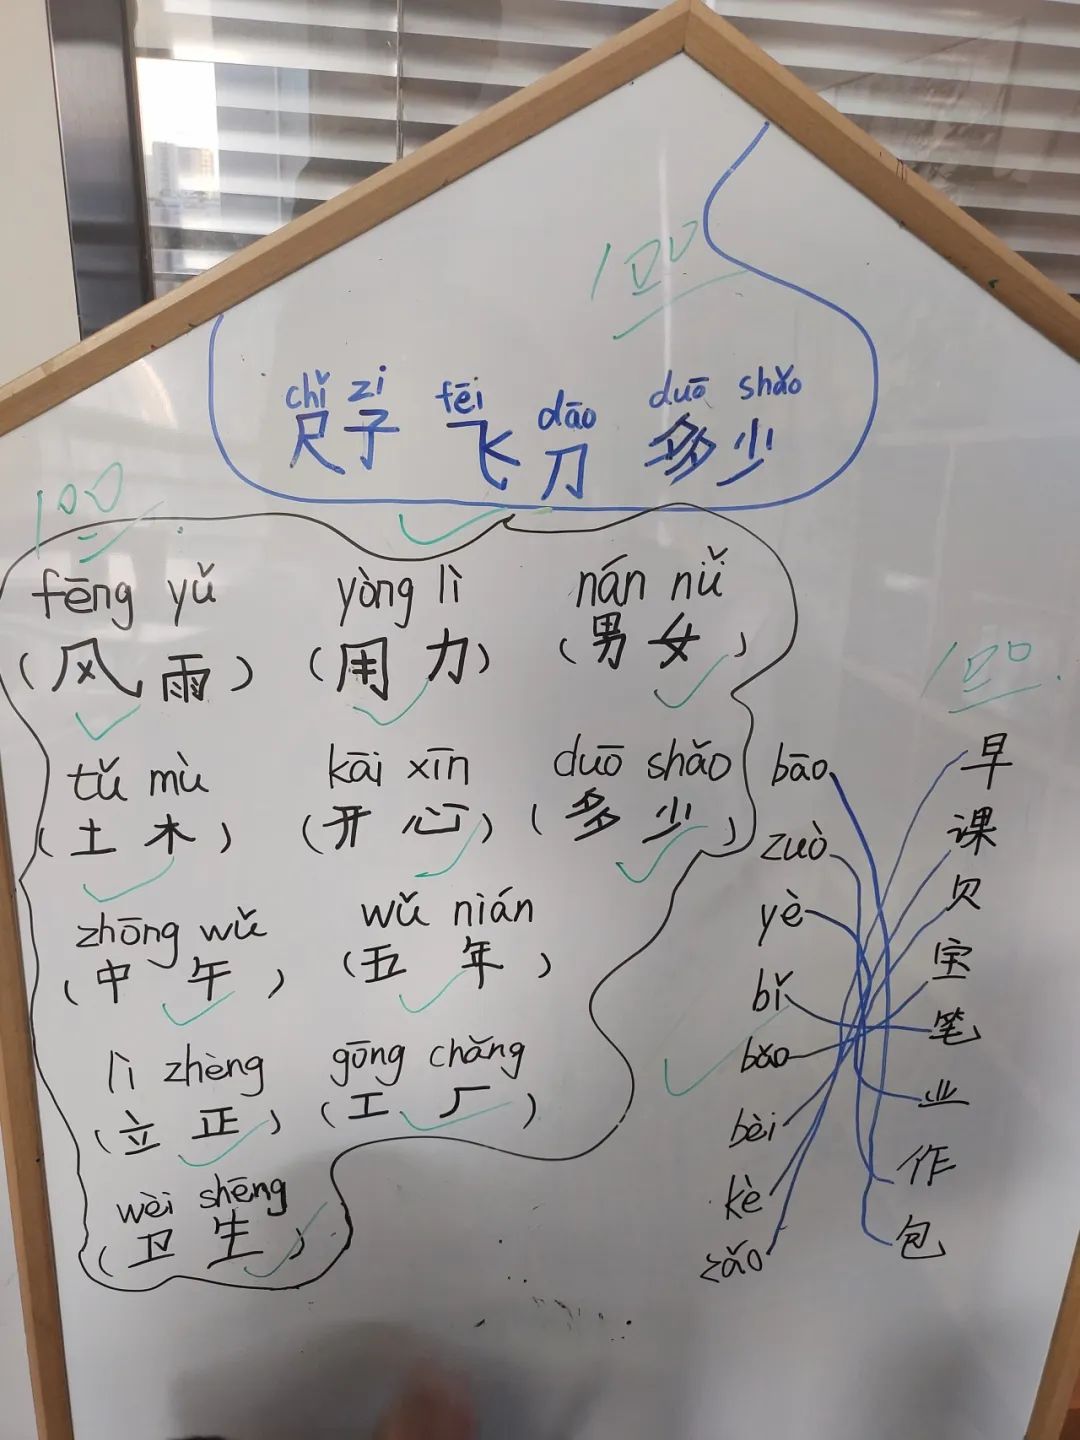 100
chǐ zi fēi dāo duō shǎo
尺子 飞刀 多少
100
fēng yǔ yòng lì nán nǚ
(风雨) (用力) (男女)
tǔ mù kāi xīn duō shǎo
(土木) (开心) (多少)
zhōng wǔ wǔ nián
(中午) (五年)
lì zhèng gōng chǎng
(立正) (工厂)
wèi shēng
(卫生)
100
bāo 早
zuò 课
yè 贝
bǐ 宝
bǎo 笔
bèi 业
kè 作
zǎo 包